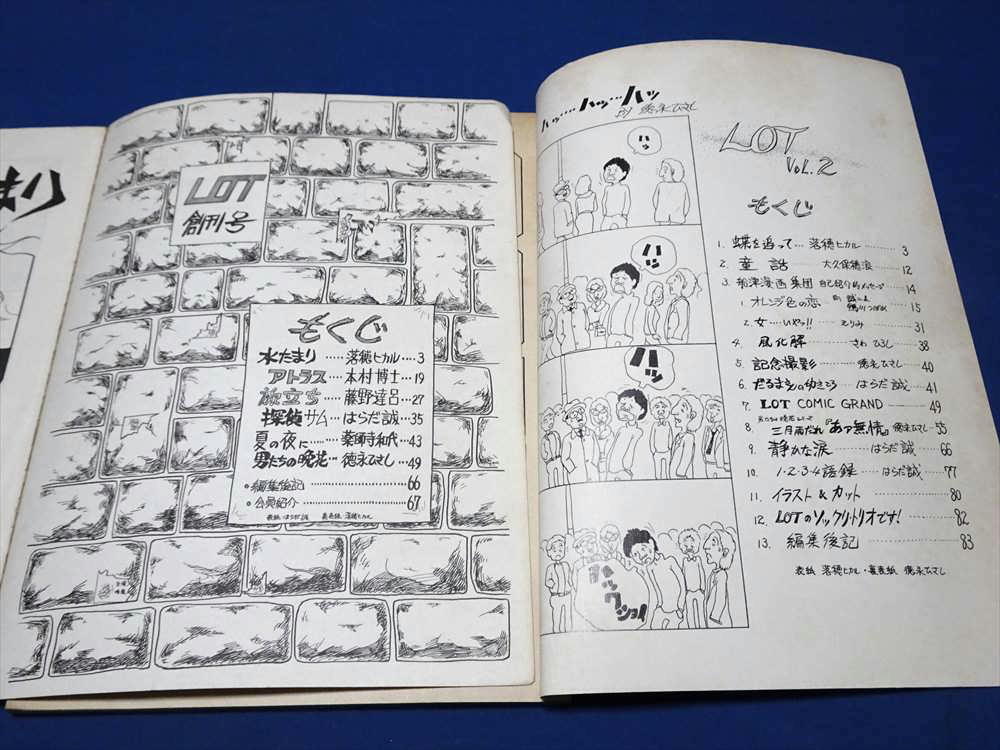 まり
LOT
創刊号
もくじ
水たまり ‥‥‥ 落穂ヒカル ‥‥ 3
アトラス ‥‥ 本村博士 ‥ 19
旅立ち ‥‥ 藤野達呂 ‥ 27
探偵サム ‥‥ はらだ誠 ‥ 35
夏の夜に ‥‥‥ 薬師寺和代 ‥ 43
男たちの晩花 ‥ 徳永ひさし ‥ 49
・編集後記 ‥‥‥‥‥‥ 66
・会員紹介 ‥‥‥‥‥‥ 67
表紙 はらだ誠 裏表紙 落穂ヒカル
ハッ‥‥ハッ‥‥ハッ
by 徳永ひさし
ハッ
ハッ
ハッ
ハックション
LOT
VOL. 2
もくじ
1. 蝶を追って‥ 落穂ヒカル ‥‥‥ 3
2. 童話 大久保穂浪 ‥‥ 12
3. 船津漫画集団 自己紹介的メッセージ 14
1 オレンジ色の恋 15
2. 女‥‥いやッ!! えりみ ‥‥ 31
4. 風化解 ‥‥‥ さわひろし ‥‥ 38
5. 記念撮影 ‥‥‥ 徳永ひさし ‥ 40
6. だるまさんのゆきどう ‥ はらだ誠 ‥ 41
7. LOT COMIC GRAND ‥‥ 49
8. 三月雨だれ『あァ無情』 徳永ひさし ‥ 55
9. 静かな涙 ‥‥‥ はらだ誠 ‥‥ 66
10. 1・2・3・4語録 ‥‥ はらだ誠 ‥‥ 77
11. イラスト & カット ‥‥‥‥ 80
12. LOTのソックリ・トリオです! ‥‥ 82
13. 編集後記 ‥‥‥‥ 83
表紙 落穂ヒカル・裏表紙 徳永ひさし